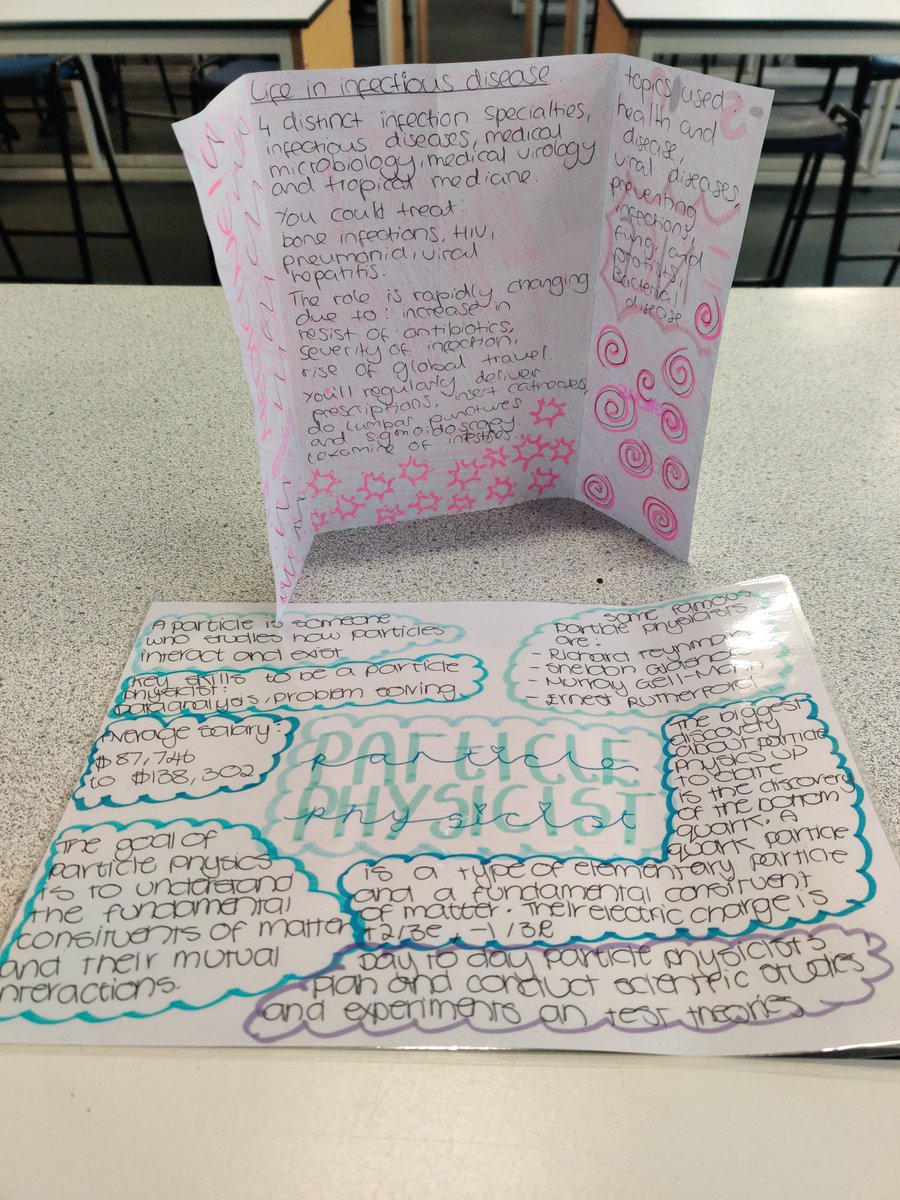 Life in infectious disease
4 distinct infection specialties,
infectious diseases, medical
microbiology, medical virology
and tropical medicine.
You could treat:
bone infections, HIV,
pneumonia, viral
hepatitis.
The role is rapidly changing
due to: increase in
resist of antibiotics,
severity of infection,
rise of global travel.
You'll regularly deliver
prescriptions, insert catheders,
do lumbar punctures
and sigmoidoscopy
(examine of intestines.
topics used
health and
disease,
viral diseases,
preventing
infections,
fungi and
protists,
Bacteria
disease
A particle is someone
who studies how particles
interact and exist
Key skills to be a particle
physicist:
data analysis, problem solving
Average salary:
$87,746
to $138,302
The goal of
particle physics
is to understand
the fundamental
consituents of matter
and their mutual
interactions.
PARTICLE
particle
PHYSICIST
physicist
some famous
particle physicists
are:
- Richard Feynman
- Sheldon
- Murray Gell-Mann
- Ernest Rutherford
The biggest
discovery
about particle
physics up
to date
is the discovery
of the bottom
quark. A
quark particle
is a type of elementary particle
and a fundamental constituent
of matter. Their electric charge is
+2/3e, -1/3e
Day to day particle physicist's
plan and conduct scientific studies
and experiments an test theories